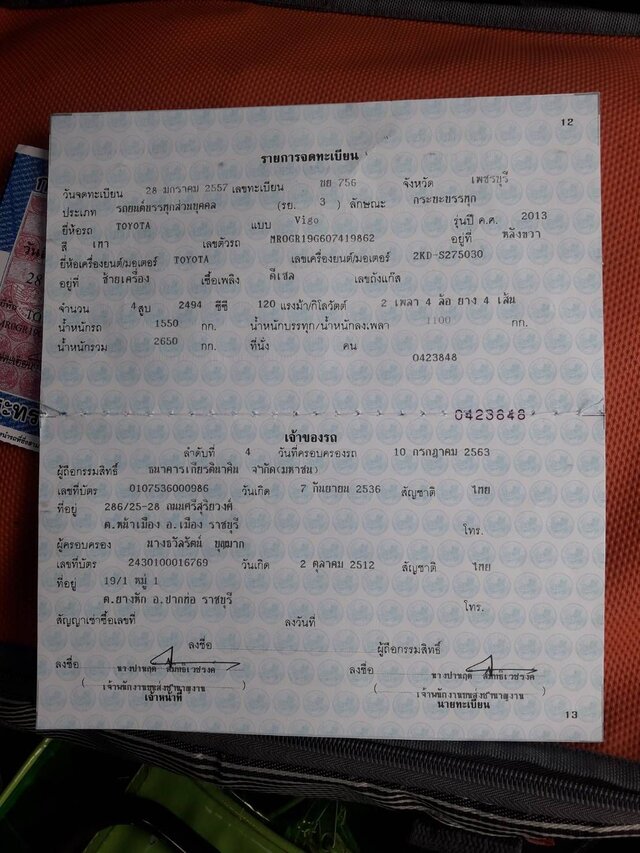 12
รายการจดทะเบียน
วันจดทะเบียน 28 มกราคม 2557 เลขทะเบียน ขย 756 จังหวัด เพชรบุรี
ประเภท รถยนต์บรรทุกส่วนบุคคล (รย. 3 ) ลักษณะ กระบะบรรทุก
ยี่ห้อรถ TOYOTA แบบ Vigo รุ่นปี ค.ศ. 2013
สี เทา เลขตัวรถ MROGR19G607419862 อยู่ที่ หลังขวา
ยี่ห้อเครื่องยนต์/มอเตอร์ TOYOTA เลขเครื่องยนต์/มอเตอร์ 2KD-S275030
อยู่ที่ ซ้ายเครื่อง เชื้อเพลิง ดีเซล เลขถังแก๊ส
จำนวน 4 สูบ 2494 ซีซี 120 แรงม้า/กิโลวัตต์ 2 เพลา 4 ล้อ ยาง 4 เส้น
น้ำหนักรถ 1550 กก. น้ำหนักบรรทุก/น้ำหนักลงเพลา 1100 กก.
น้ำหนักรวม 2650 กก. ที่นั่ง คน
0423848
0423848
เจ้าของรถ
ลำดับที่ 4 วันที่ครอบครองรถ 10 กรกฎาคม 2563
ผู้ถือกรรมสิทธิ์ ธนาคารเกียรตินาคิน จำกัด(มหาชน)
เลขที่บัตร 0107536000986 วันเกิด 7 กันยายน 2536 สัญชาติ ไทย
ที่อยู่ 286/25-28 ถนนศรีสุริยวงศ์
ต.หน้าเมือง อ.เมือง ราชบุรี โทร.
ผู้ครอบครอง นางธวัลรัตน์
เลขที่บัตร 2430100016769 วันเกิด 2 ตุลาคม 2512 สัญชาติ ไทย
ที่อยู่ 19/1 หมู่ 1
ต.ยางหัก อ.ปากท่อ ราชบุรี โทร.
สัญญาเช่าซื้อเลขที่ ลงวันที่
ลงชื่อ ผู้ถือกรรมสิทธิ์
ลงชื่อ ลงชื่อ
เจ้าหน้าที่ นายทะเบียน
13